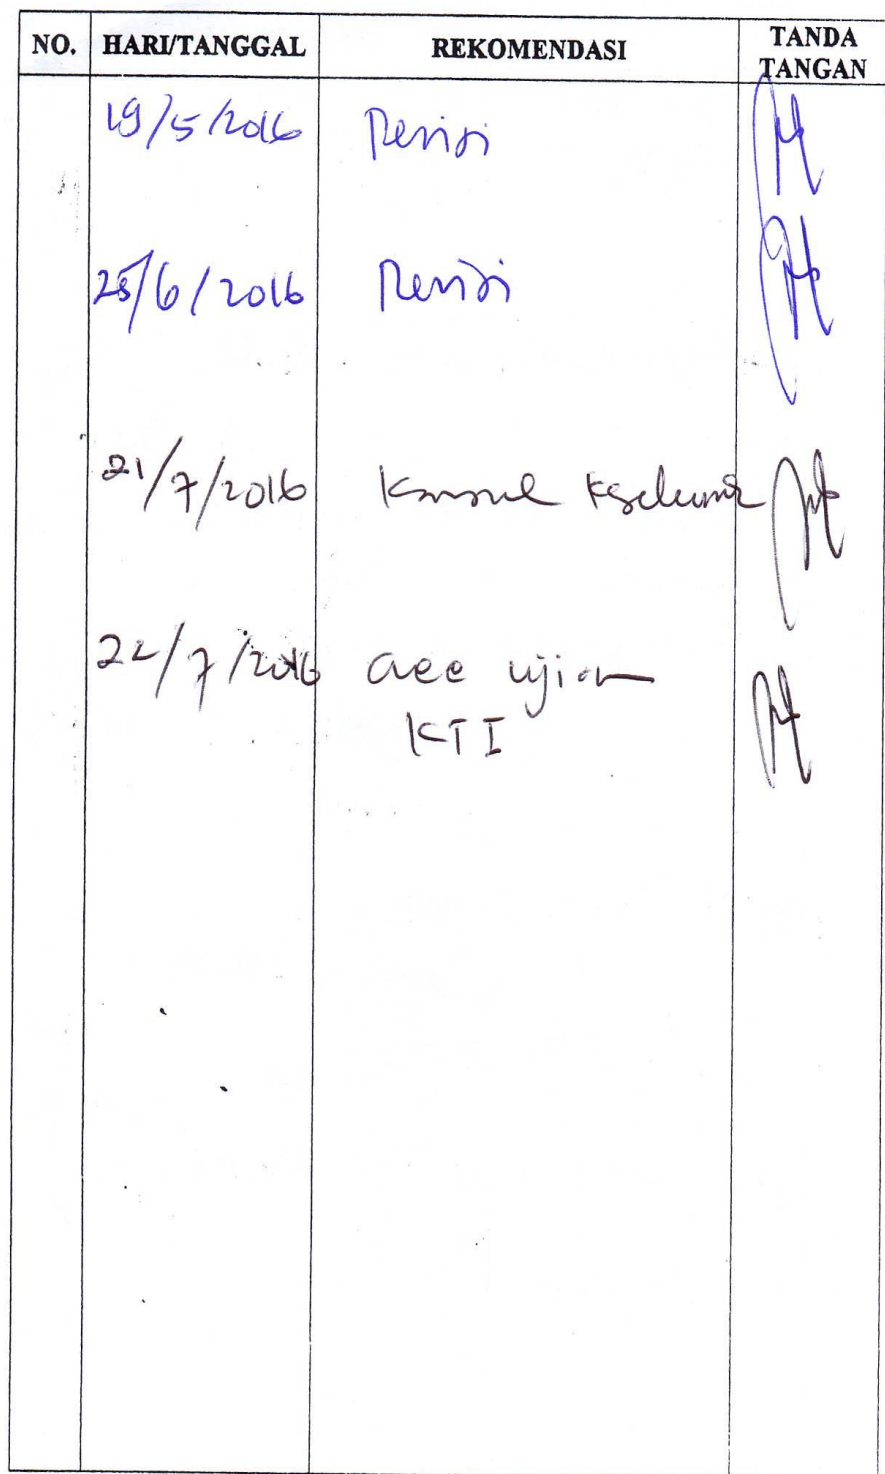 NO. HARI/TANGGAL REKOMENDASI TANDA TANGAN
19/5/2016 Revisi
25/6/2016 Revisi
21/7/2016 Konsul
22/7/2016 acc ujian
KTI